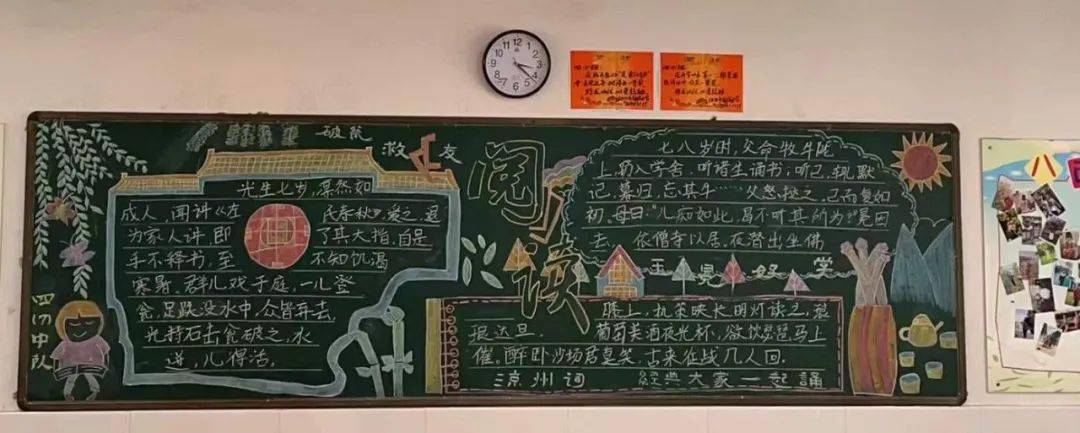 破瓮
救友
光生七岁,凛然如
成人,闻讲《左
氏春秋》,爱之,退
为家人讲,即
了其大指,自是
手不释书,至
不知饥渴
寒暑。群儿戏于庭,一儿登
瓮,足跌没水中,众皆弃去,
光持石击瓮破之,水
迸,儿得活。
四(1)中队
阅读
七八岁时,父命牧牛陇
上,窃入学舍,听诸生诵书;听已,辄默
记。暮归,忘其牛……父怒挞之,已而复如
初。母曰:“儿痴如此,曷不听其所为?”冕因
去,依僧寺以居,夜潜出坐佛
王冕好学
膝上,执策映长明灯读之,琅
琅达旦。
葡萄美酒夜光杯,欲饮琵琶马上
催。醉卧沙场君莫笑,古来征战几人回。
凉州词
经典大家一起誦
12
1
2
3
4
5
6
7
8
9
10
11